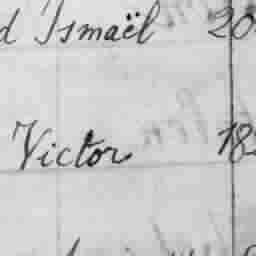 d Ismaël 20
Victor 18